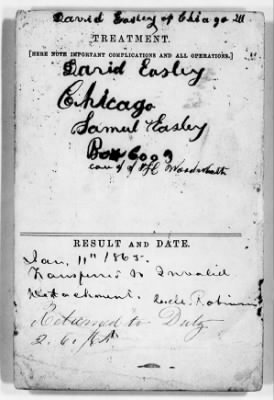 David Easley of Chicago Ill
TREATMENT.
[HERE NOTE IMPORTANT COMPLICATIONS AND ALL OPERATIONS.]
David Easley
Chicago
Samul Easley
Box 6009
care of
RESULT AND DATE.
Jan, 11" 1865.
Transferred to Invalid
Detachment.
Returned to Duty